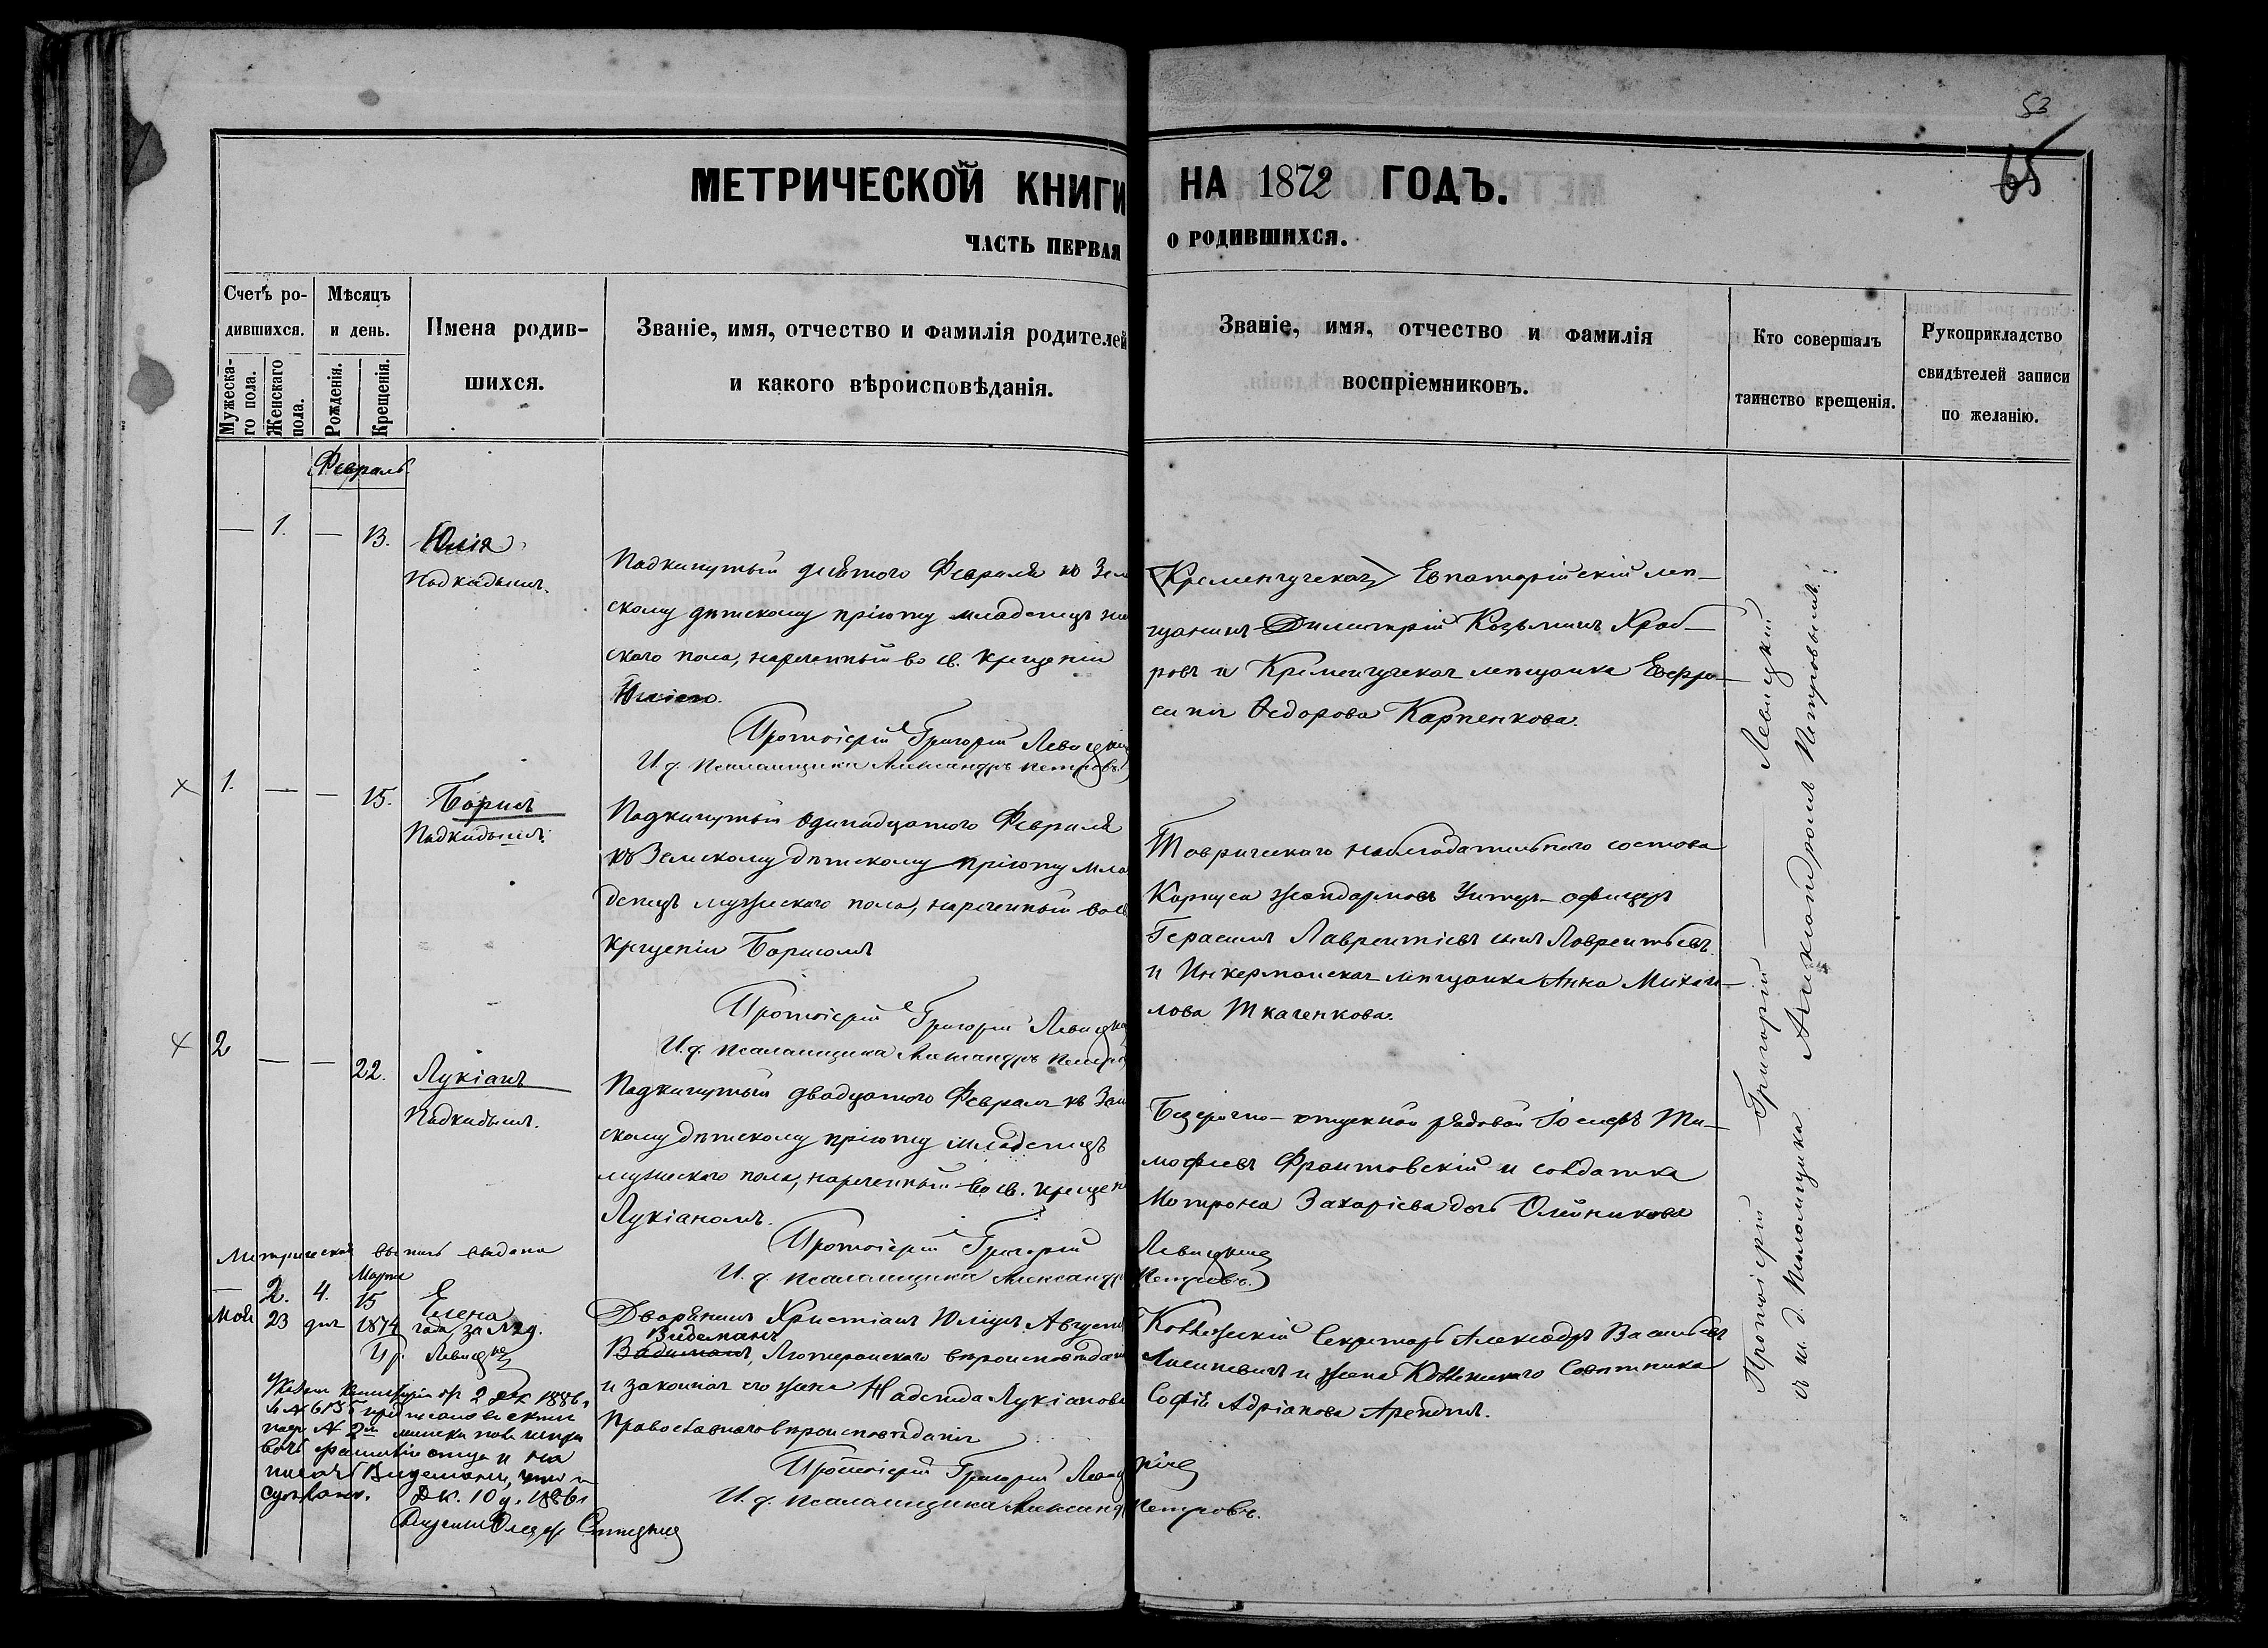 53
65
МЕТРИЧЕСКОЙ КНИГИ НА 1872 ГОДЪ.
ЧАСТЬ ПЕРВАЯ О РОДИВШИХСЯ.
Счетъ ро-
дившихся.
Мужеска-
го пола.
Женскаго
пола.
Мѣсяцъ
и день.
Рожденія.
Крещенія.
Имена родив-
шихся.
Званіе, имя, отчество и фамилія родителей
и какого вѣроисповѣданія.
Званіе, имя, отчество и фамилія
воспріемниковъ.
Кто совершалъ
таинство крещенія.
Рукоприкладство
свидѣтелей записи
по желанію.
Февраль
— 1. — 13. Юлія
Подкидышъ.
Подкинутый девятого Февраля къ Зем
скому дѣтскому пріюту младенецъ жен
скаго пола, нареченный во св. крещеніи
Юліею.
Протоіерей Григорій Левицкій
И. д. псаломщика Александръ Петровъ
Кременчугская Евпаторійскій мѣ-
щанинъ Димитрій Козьминъ Храб-
ровъ и Кременчугская мѣщанка Евфро-
синія Ѳедорова Карпенкова.
1. — — 15. Борисъ
Подкидышъ.
Подкинутый одинадцатого Февраля
къ Земскому дѣтскому пріюту мла
денецъ мужескаго пола, нареченный во св
крещеніи Борисомъ
Протоіерей Григорій Левицкій
И. д. псаломщика Александръ Петро
Таврическаго наблюдательнаго состава
Корпуса жандармовъ Унтеръ-офицеръ
Герасимъ Лаврентіевъ сынъ Лаврентьевъ
и Инкерманская мѣщанка Анна Михаи-
лова Ткаченкова.
2 — — 22. Лукіанъ
Подкидышъ.
Подкинутый двадцатого Февраля къ Зем
скому дѣтскому пріюту младенецъ
мужескаго пола, нареченный во св. крещен
Лукіаномъ.
Протоіерей Григорій Левицкій
И. д. псаломщика Александръ Петровъ.
Безсрочно-отпускной рядовой Іосифъ Ти-
мофеевъ Франтовскій и солдатка
Матрона Захаріева дочь Олейникова
Метрическая выпись выдана
Марта
— 2. 4. 15 Елена
Мая 23 дня 1874 года за № 29.
Пр. Левицкій
Дворянинъ Христіанъ Юліусъ Август
Видеманъ
Видиманъ, Лютеранскаго вѣроисповѣдан
и законная его жена Надежда Лукіанова
Православнаго вѣроисповѣданія
Протоіерей Григорій Левицкій
И. д. псаломщика Александръ Петровъ.
Коллежскій Секретарь Александръ Васильевъ
и жена Коллежскаго Совѣтника
Софія Адріанова Арендтъ.
Указомъ Консисторіи от 2 дек 1886 г
за № 6135 предписано въ актѣ
подъ № 2м
фамилію отца и на
писать Видеманъ, что и
Дек. 10 д. 1886 г
Протоіерей Григорій Левицкій
съ и. д. Псаломщика Александромъ Петровымъ.